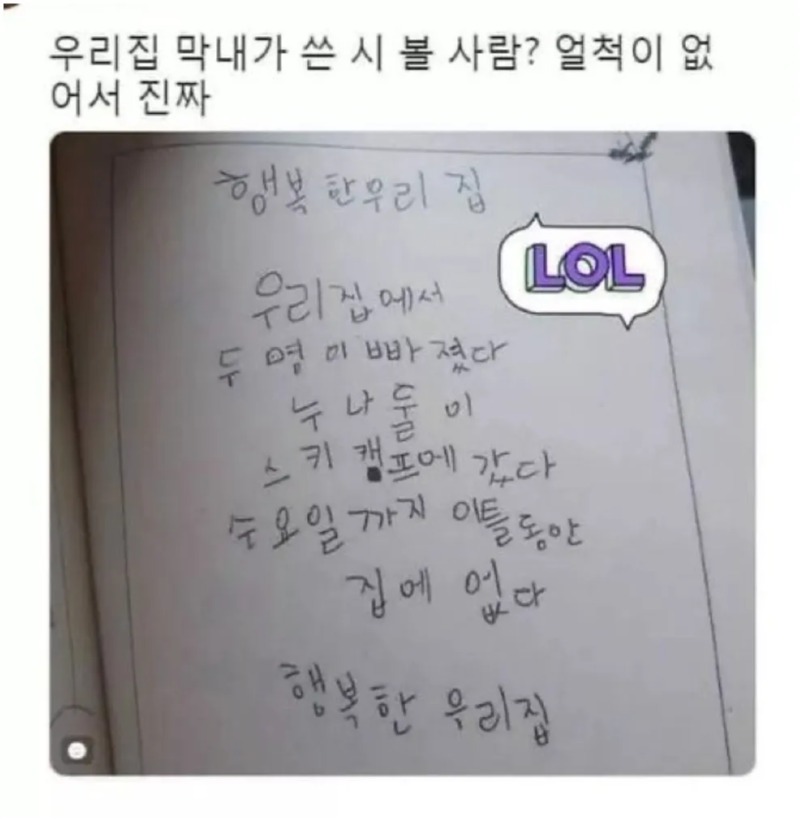 우리집 막내가 쓴 시 볼 사람? 얼척이 없
어서 진짜
행복한우리 집
LOL
우리집에서
두 명이 빠졌다
누나둘이
스키캠프에 갔다
수요일까지 이틀동안
집에 없다
행복한 우리집